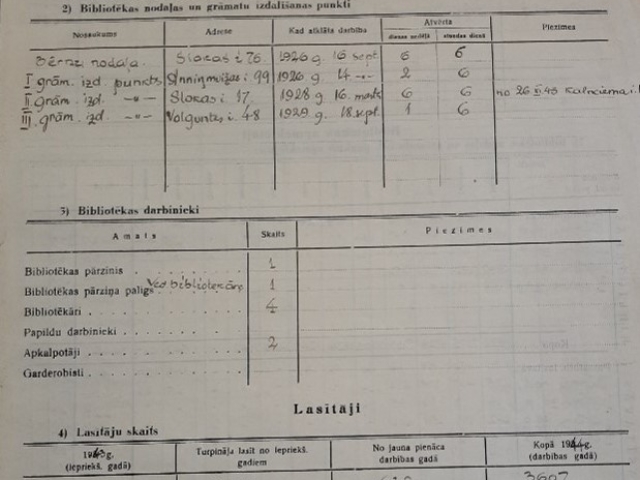 2) Bibliotēkas nodaļas un grāmatu izdalīšanas punkti
Nosaukums Adrese Kad atklāts darbībā Atvērta Piezīmes
dienas nedēļā stundas dienā
Bērnu nodaļa. Slokas i. 76 1926 g. 16 sept. 6 6
I grām. izd. punkts Anniņmuižas i. 99 1926 g. 14 -"- 2 6
II grām. izd. -"- Slokas i. 17 1928 g. 16. martā 6 6 no 26 XI 43 Kalnciema i.
III. grām. izd. -"- Volguntes i. 48 1929 g. 18 sept. 1 6
3) Bibliotēkas darbinieki
Amats Skaits Piezīmes
Bibliotēkas pārzinis 1
Bibliotēkas pārziņa palīgs Vec bibliotekāre 1
Bibliotēkāri 4
Papildu darbinieki
Apkalpotāji 2
Garderobisti
Lasītāji
4) Lasītāju skaits
1943g. (iepriekš. gadā) Turpināja lasīt no iepriekš. gadiem No jauna pienāca darbības gadā Kopā 1944g. (darbības gadā)